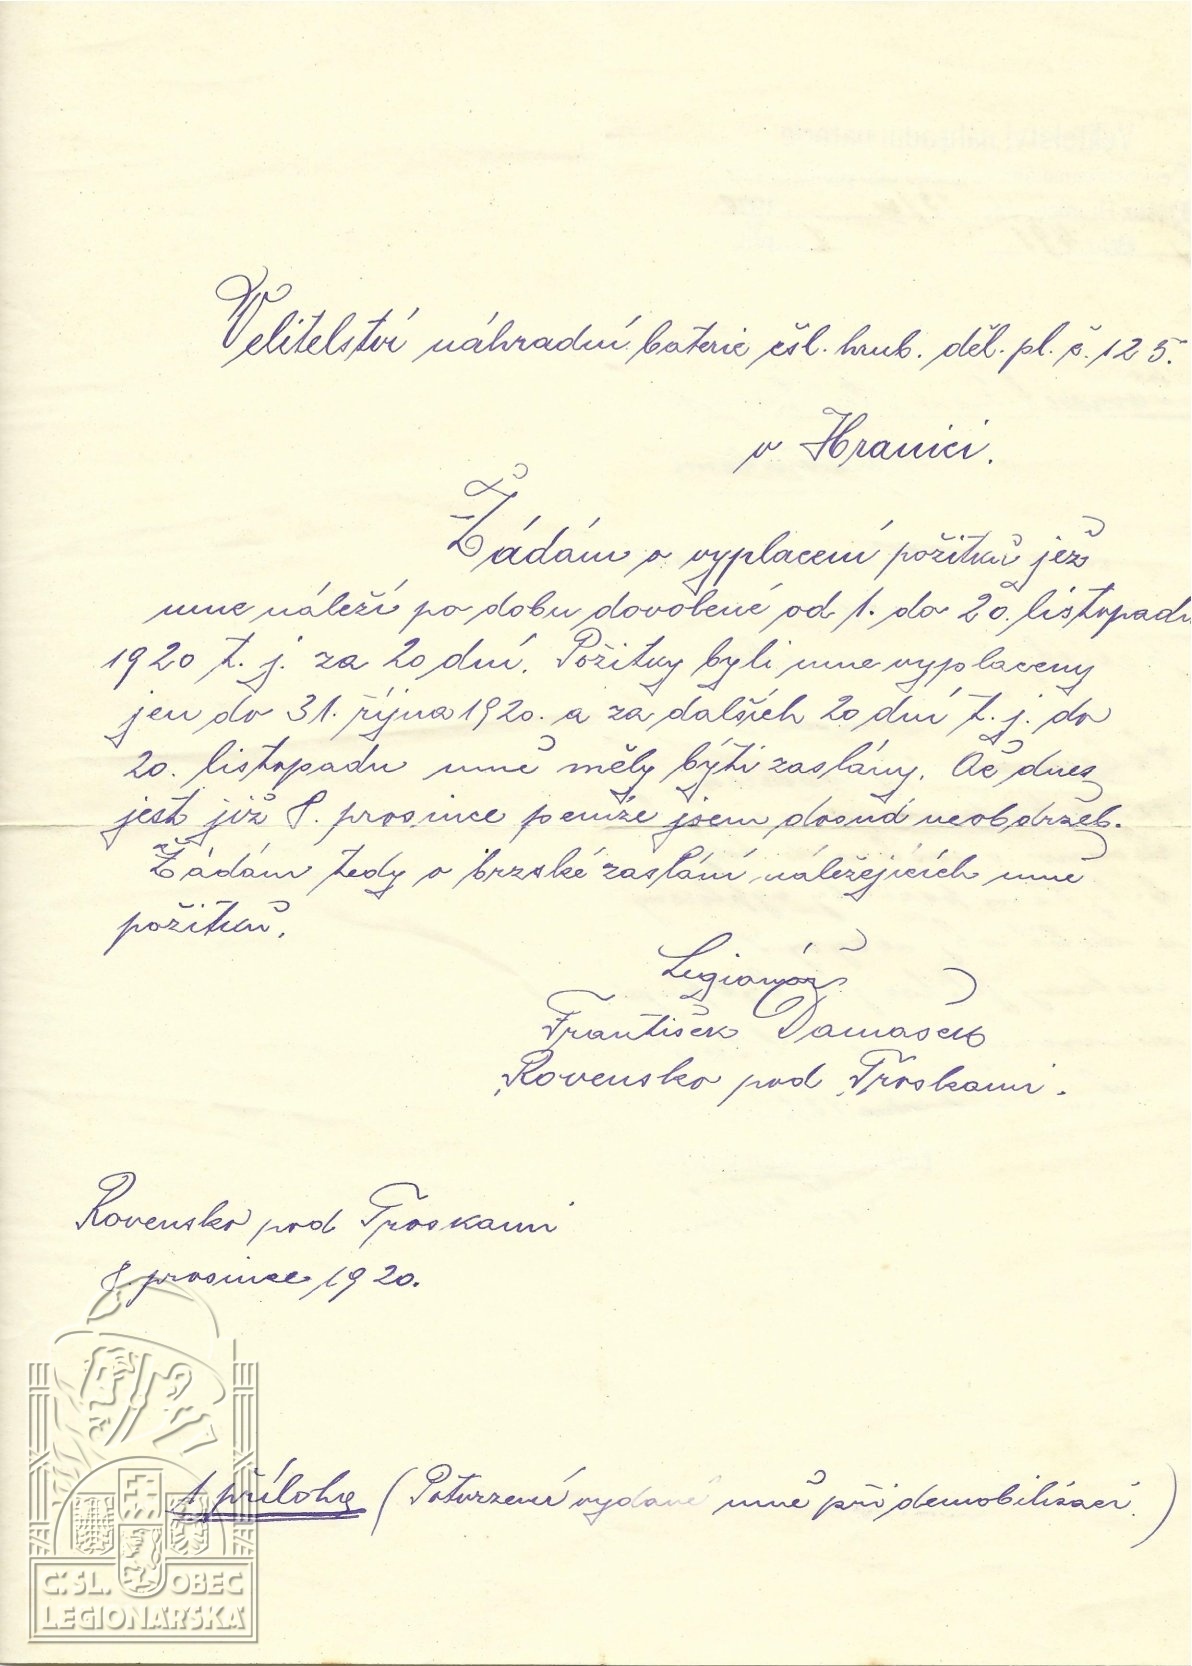 Velitelství náhradní baterie čsl. hrub. děl. pl. č. 125.
v Hranici.
Žádám o vyplacení požitků jež
mne náleží po dobu dovolené od 1. do 20. listopadu
1920 t. j. za 20 dní. Požitky byli mne vyplaceny
jen do 31. října 1920. a za dalších 20 dní t. j. do
20. listopadu mně měly býti zaslány. Ač dnes
jest již 8. prosince peníze jsem dosud neobdržel.
Žádám tedy o brzské zaslání náležejících mně
požitků.
Legionář
František Damašek
Rovensko pod Troskami.
Rovensko pod Troskami
8. prosince 1920.
1 příloha (Potvrzení vydané mně při demobilisaci.)
Č. SL. OBEC
LEGIONÁŘSKÁ